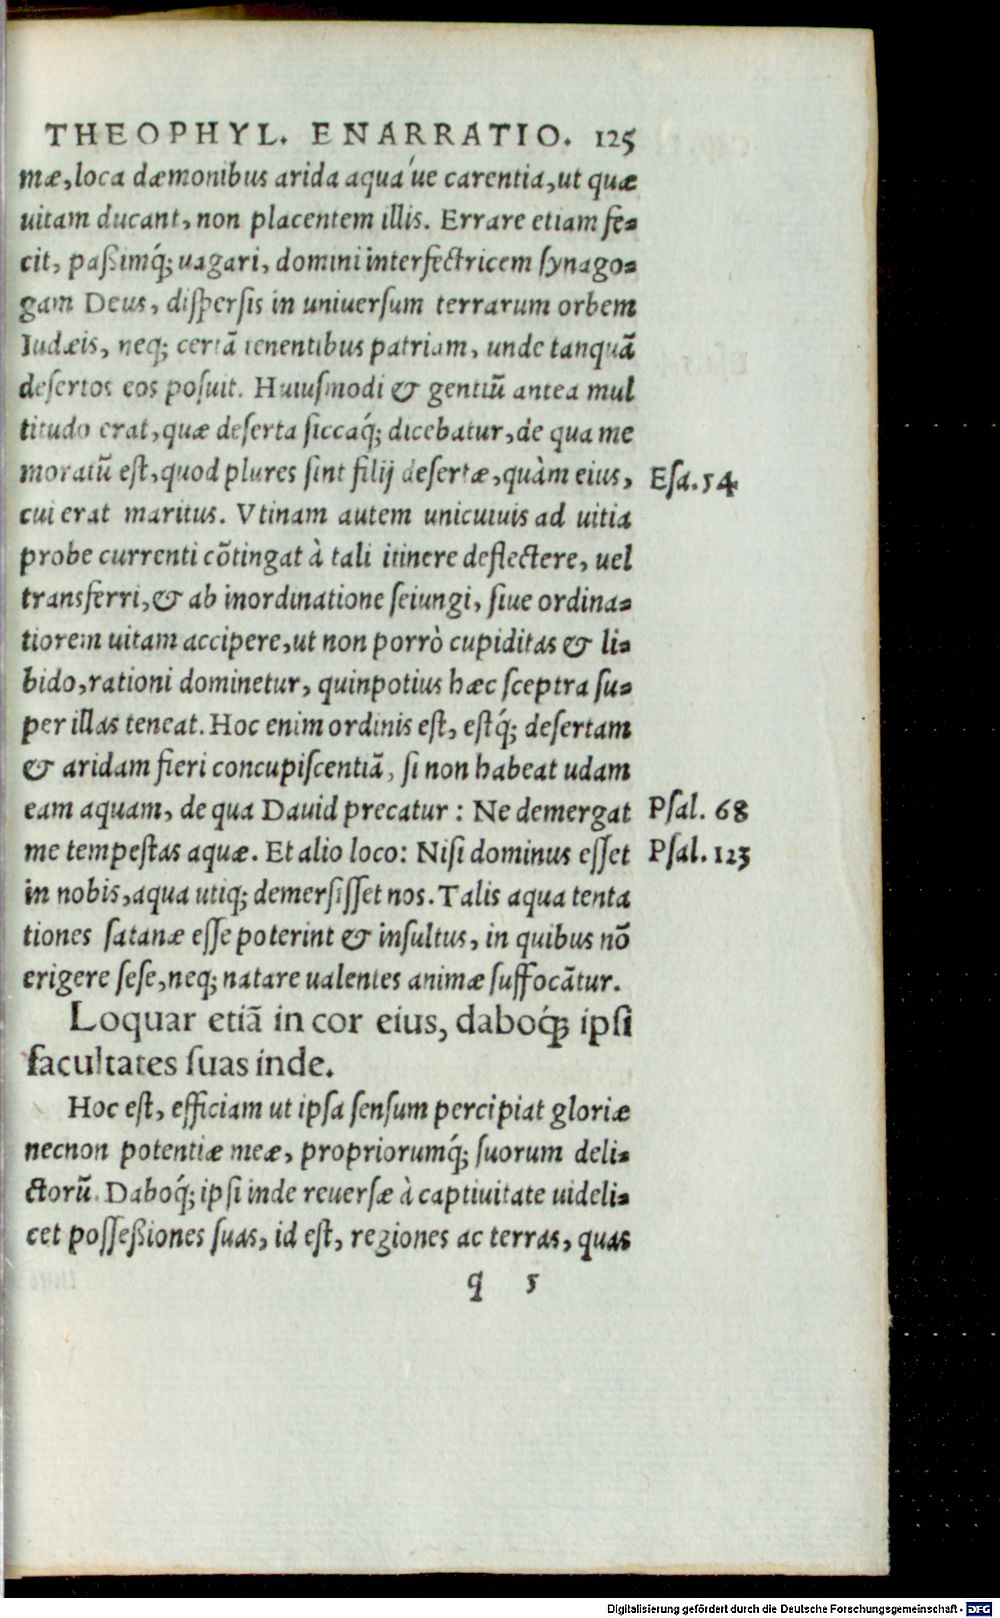 THEOPHYL. ENARRATIO. 125
mæ, loca dæmonibus arida aqua´ue carentia, ut quæ
uitam ducant, non placentem illis. Errare etiam fe-
cit, paßimq́; uagari, domini interfectricem ſynago-
gam Deus, diſperſis in uniuerſum terrarum orbem
Iudæis, neq; certã tenentibus patriam, unde tanquã
deſertos eos poſuit. Huiuſmodi & gentiũ antea mul
titudo erat, quæ deſerta ſiccaq́; dicebatur, de qua me
moratũ est, quod plures ſint filij deſertæ, quàm eius,
Eſa. 54
cui erat maritus. Vtinam autem unicuiuis ad uitia
probe currenti cõtingat à tali itinere deflectere, uel
transferri, & ab inordinatione ſeiungi, ſiue ordina-
tiorem uitam accipere, ut non porrò cupiditas & li-
bido, rationi dominetur, quinpotius hæc ſceptra ſu-
per illas teneat. Hoc enim ordinis est, estq́; deſertam
& aridam fieri concupiſcentiã, ſi non habeat udam
eam aquam, de qua Dauid precatur: Ne demergat
Pſal. 68
me tempestas aquæ. Et alio loco: Niſi dominus eſſet
Pſal. 123
in nobis, aqua utiq; demerſiſſet nos. Talis aqua tenta
tiones ſatanæ eſſe poterint & inſultus, in quibus nõ
erigere ſeſe, neq; natare ualentes animæ ſuffocãtur.
Loquar etiã in cor eius, daboq́; ipſi
facultates ſuas inde.
Hoc est, efficiam ut ipſa ſenſum percipiat gloriæ
necnon potentiæ meæ, propriorumq́; ſuorum deli-
ctorũ. Daboq́; ipſi inde reuerſæ à captiuitate uideli-
cet poſſeßiones ſuas, id est, regiones ac terras, quas
q 5
Digitalisierung gefördert durch die Deutsche Forschungsgemeinschaft - DFG